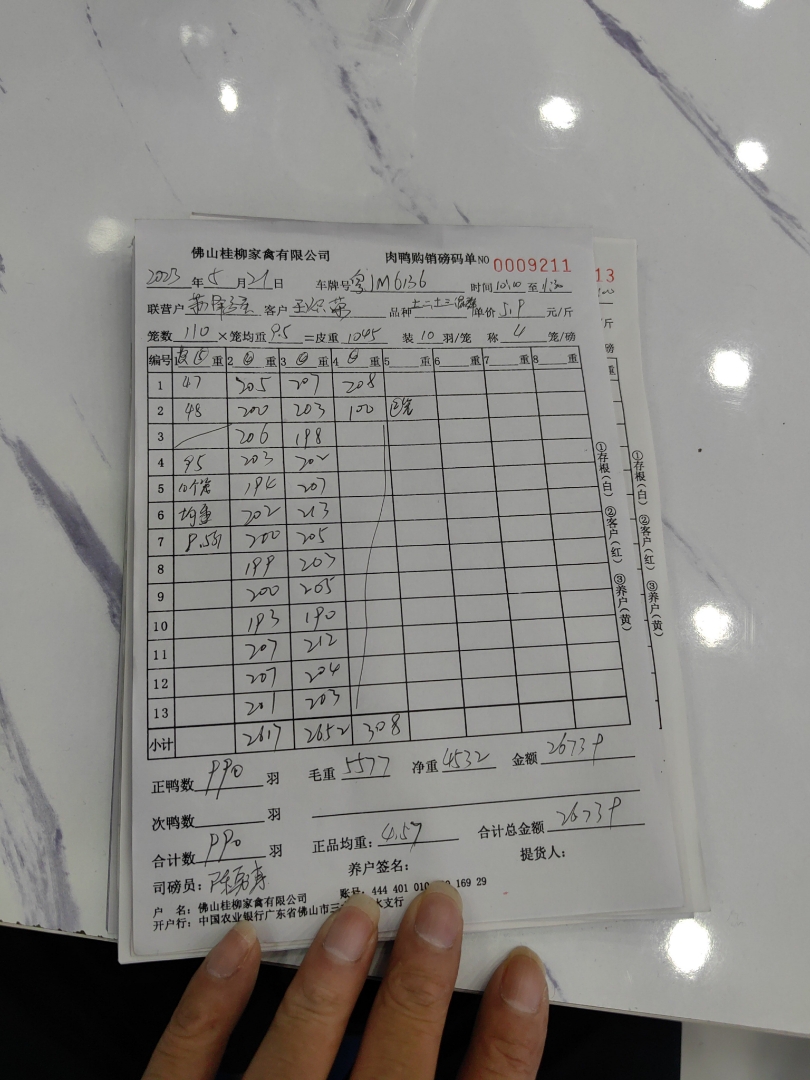 佛山桂柳家禽有限公司 肉鸭购销磅码单 NO 0009211
2023 年 5 月 21 日 车牌号 粤JM6136 时间 至
联营户 客户 品种 单价 5.9 元/斤
笼数 110 ×笼均重 9.5 =皮重 1045 装 10 羽/笼 称 4 笼/磅
编号 1 重 2 重 3 重 4 重 5 重 6 重 7 重 8 重
1 47 205 207 208
2 48 200 203 100
3 206 198
4 95 203 202
5 10个笼 194 207
6 均重 202 213
7 200 205
8 199 203
9 200 205
10 193 190
11 207 212
12 207 204
13 201 203
小计 2617 2652 308
正鸭数 990 羽 毛重 5577 净重 4532 金额 26739
次鸭数 羽
合计数 990 羽 正品均重: 4.57 合计总金额 26739
司磅员: 养户签名: 提货人:
户 名: 佛山桂柳家禽有限公司 账号: 444 401 010 169 29
开户行: 中国农业银行广东省佛山市三 水支行
①存根(白) ②客户(红) ③养户(黄)
13
斤
磅
重
①存根(白) ②客户(红) ③养户(黄)